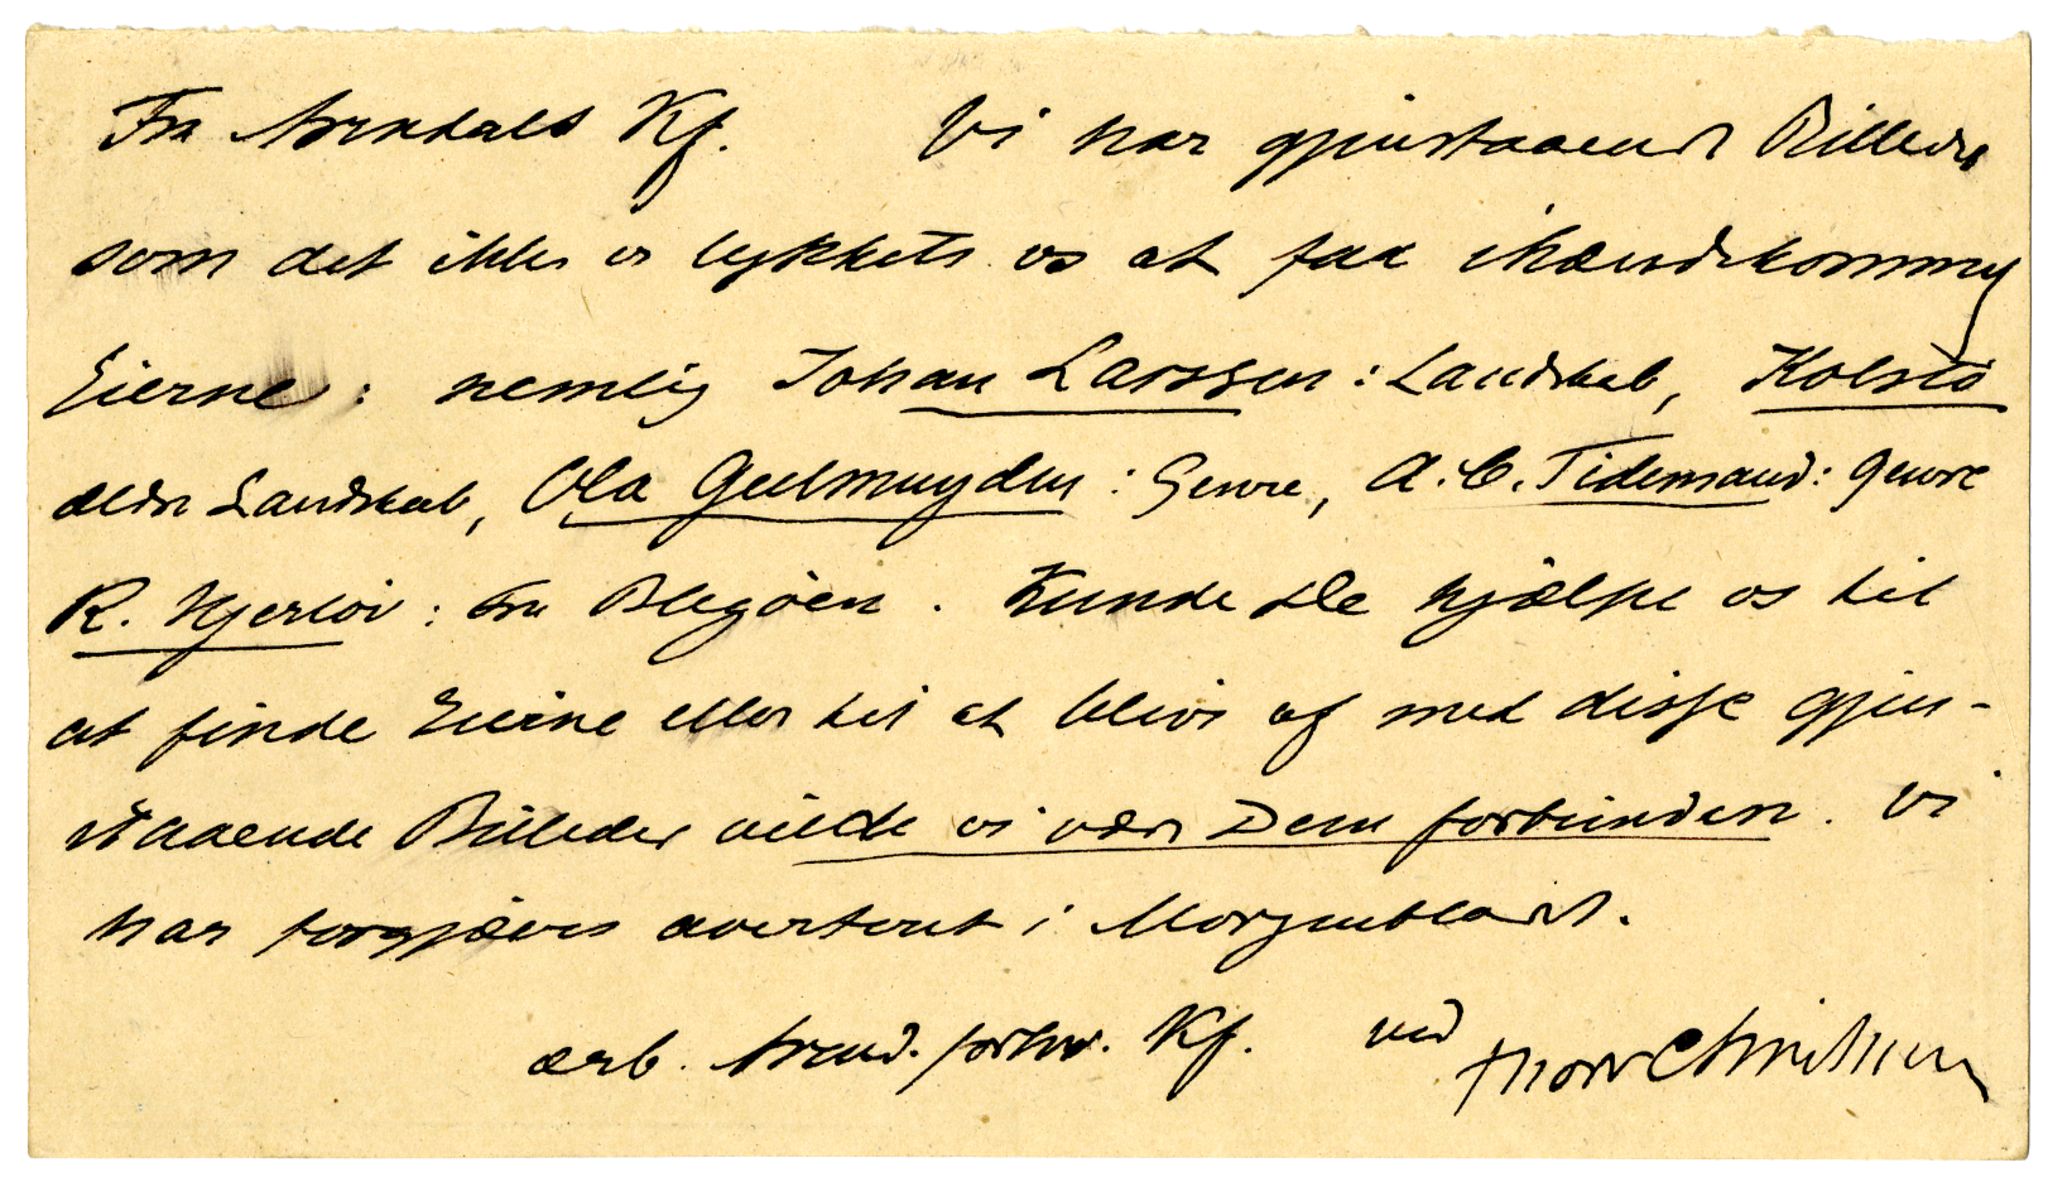 Fra Arendals Kf. Vi har gjenstaaende Billeder
som det ikke er lykkets os at faa ihændekommet
Eierne: nemlig Johan Larssen: Landskab, Kolstø
ældre Landskab, Ola Geelmuyden: Genre, A. C. Tidemand: Genre
R. Hjerløv: Fra Blegøen. Kunde De hjælpe os til
at finde Eierne eller til at blive af med disse gjen-
staaende Billeder vilde vi være Dem forbunden. Vi
har forgjæves averteret i Morgenbladet.
ærb. Arend. Kf. ved